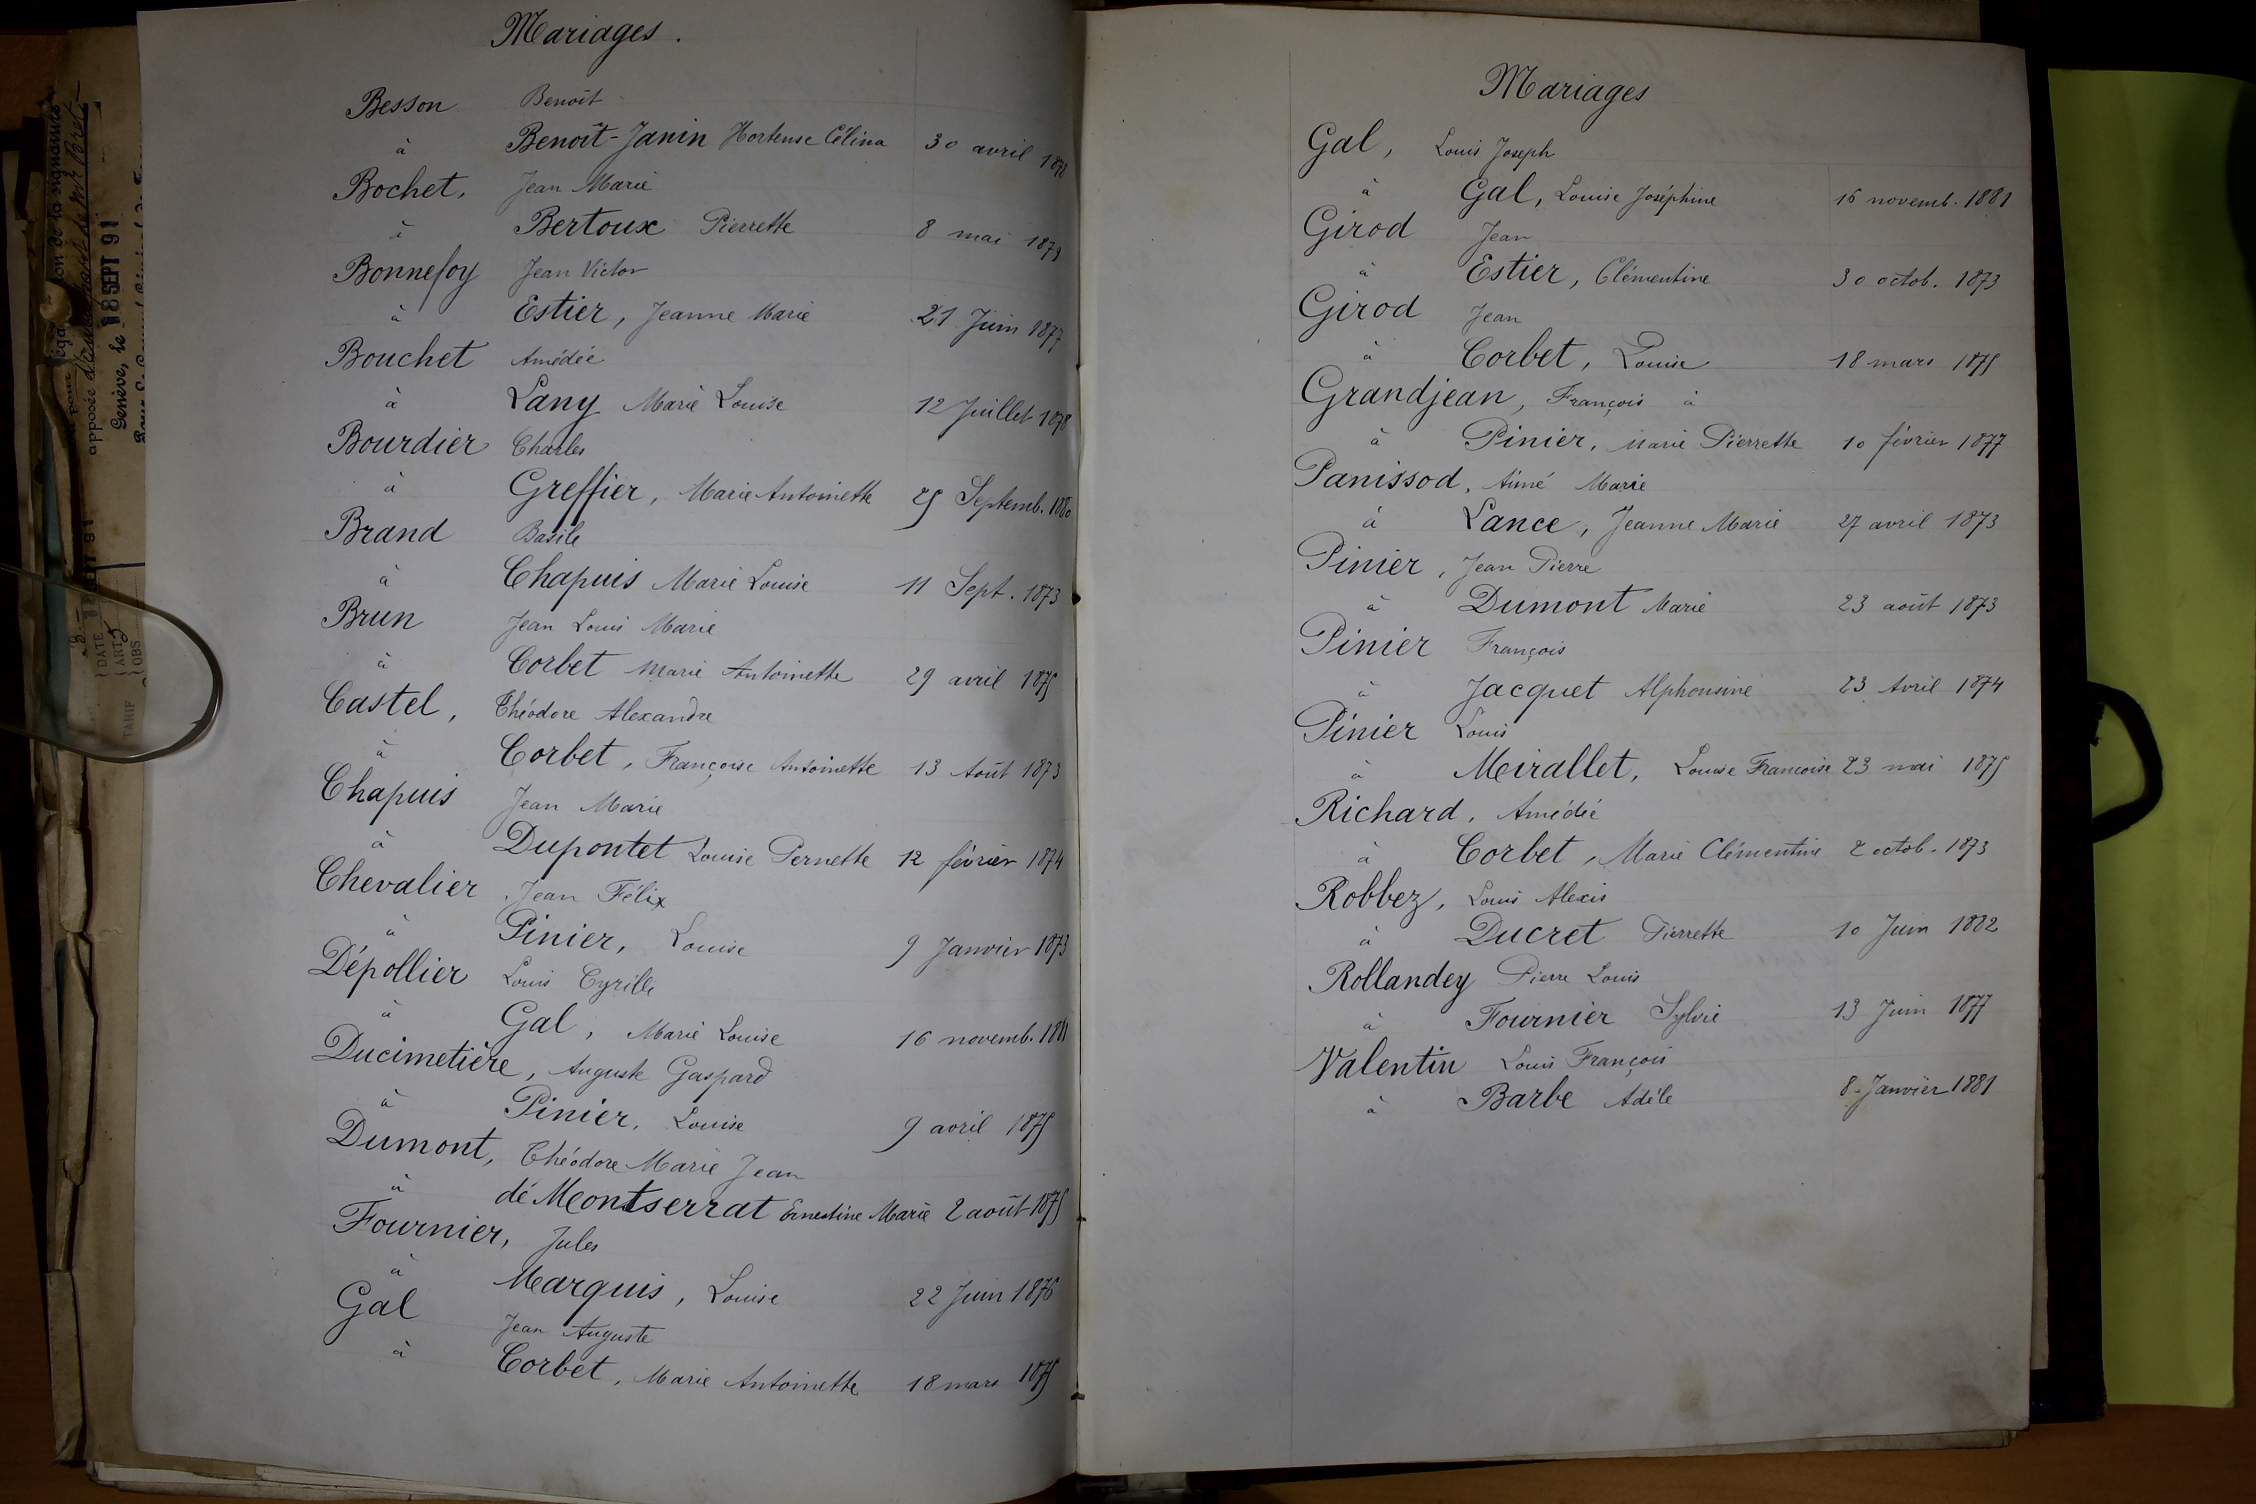 Mariages.
Besson Benoît
à Benoît-Janin Hortense Célina 30 avril
Bochet, Jean Marie
à Bertoux Pierrette 8 mai 1879
Bonnefoy Jean Victor
à Estier, Jeanne Marie 21 Juin 1877
Bouchet Amédée
à Lany Marie Louise 12 Juillet 1878
Bourdier Charles
à Greffier, Marie Antoinette 25 Septemb. 1880
Brand Basile
à Chapuis Marie Louise 11 Sept. 1873
Brun Jean Louis Marie
à Corbet Marie Antoinette 29 avril 1875
Castel, Théodore Alexandre
à Corbet, Françoise Antoinette 13 Août 1873
Chapuis Jean Marie
à Dupontet Louise Pernette 12 février 1874
Chevalier, Jean Félix
à Pinier, Louise 9 Janvier 1873
Dépollier Louis Cyrille
à Gal, Marie Louise 16 novemb. 1881
Ducimetière, Auguste Gaspard
à Pinier, Louise 9 avril 1875
Dumont, Théodore Marie Jean
à de Montserrat Ernestine Marie 2 août 1875
Fournier, Jules
à Marquis, Louise 22 Juin 1876
Gal Jean Auguste
à Corbet, Marie Antoinette 18 mars 1875
Mariages
Gal, Louis Joseph
à Gal, Louise Joséphine 16 novemb. 1881
Girod Jean
à Estier, Clémentine 30 octob. 1873
Girod Jean
à Corbet, Louise 18 mars 1875
Grandjean, François à
à Pinier, Marie Pierrette 10 février 1877
Panissod, Aimé Marie
à Lance, Jeanne Marie 27 avril 1873
Pinier, Jean Pierre
à Dumont Marie 23 août 1873
Pinier François
à Jacquet Alphonsine 23 Avril 1874
Pinier Louis
à Meirallet, Louise Francoise 23 mai 1875
Richard, Amédée
à Corbet, Marie Clémentine 2 octob. 1873
Robbez, Louis Alexis
à Ducret Pierrette 10 Juin 1882
Rollandey Pierre Louis
à Fournier Sylvie 13 Juin 1877
Valentin Louis François
à Barbe Adèle 8 Janvier 1881
on de la signature
apposée
Genève, le 18 SEPT 91
DATE
ART 5
OBS
TARIF